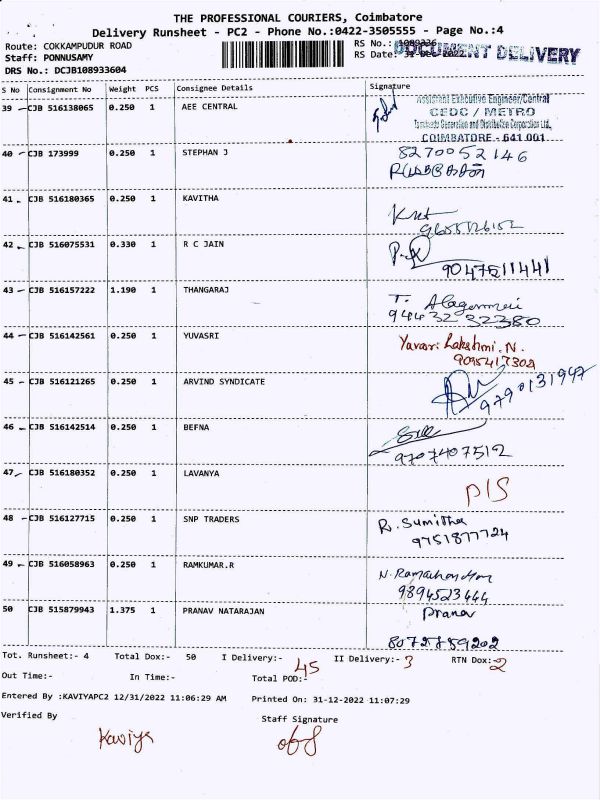 THE PROFESSIONAL COURIERS, Coimbatore
Delivery Runsheet - PC2 - Phone No.:0422-3505555 - Page No.:4
Route: COKKAMPUDUR ROAD RS No.: 1089336
Staff: PONNUSAMY RS Date: 31-DEC-2022 DOCUMENT DELIVERY
DRS No.: DCJB108933604
S No Consignment No Weight PCS Consignee Details Signature
39 CJB 516138065 0.250 1 AEE CENTRAL
Assistant Executive Engineer/Central
CEDC / METRO
Tamilnadu Generation and Distribution Corporation Ltd.,
COIMBATORE - 641 001
40 CJB 173999 0.250 1 STEPHAN J 8270052146
41 CJB 516180365 0.250 1 KAVITHA
42 CJB 516075531 0.330 1 R C JAIN
9047511441
43 CJB 516157222 1.190 1 THANGARAJ T.
9443232380
44 CJB 516142561 0.250 1 YUVASRI Yuvasri Lakshmi. N.
9095417302
45 CJB 516121265 0.250 1 ARVIND SYNDICATE 9790131947
46 CJB 516142514 0.250 1 BEFNA
9707407512
47 CJB 516180352 0.250 1 LAVANYA
P/S
48 CJB 516127715 0.250 1 SNP TRADERS R. Sumitha
9751877724
49 CJB 516058963 0.250 1 RAMKUMAR.R N. Ramachandran
9894523444
50 CJB 515879943 1.375 1 PRANAV NATARAJAN Pranav
8072859202
Tot. Runsheet:- 4 Total Dox:- 50 I Delivery:- 45 II Delivery:- 3 RTN Dox:- 2
Out Time:- In Time:- Total POD:-
Entered By :KAVIYAPC2 12/31/2022 11:06:29 AM Printed On: 31-12-2022 11:07:29
Verified By Staff Signature
Kaviya